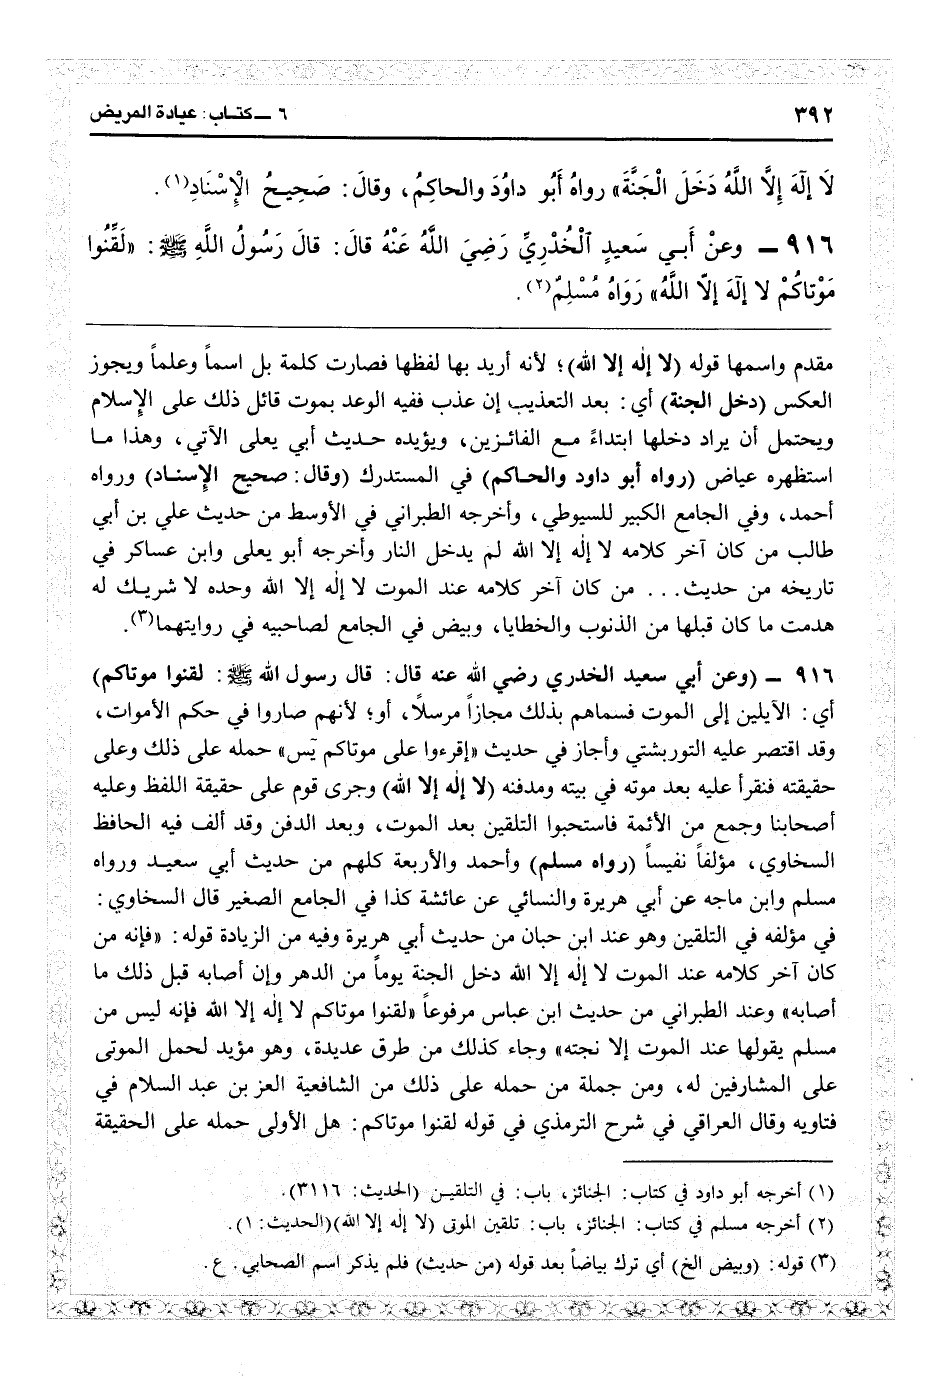 ٣٩٢
٦ ــ كتاب: عيادة المريض
لَا إلَهَ إِلَّا اللَّهُ دَخَلَ الْجَنَّةَ» رواهُ أَبُو داوُدَ والحاكِمُ، وقالَ: صَحِيحُ الْإِسْنَادِ(١).
٩١٦ ــ وعنْ أَبـي سَعيدٍ ٱلْخُدْرِيِّ رَضِيَ اللَّهُ عَنْهُ قالَ: قالَ رَسُولُ اللَّهِ ﷺ: «لَقِّنُوا
مَوْتاكُمْ لا إلَهَ إلّا اللَّهُ» رَوَاهُ مُسْلِمٌ(٢).
مقدم واسمها قوله (لا إلٰه إلا الله)؛ لأنه أريد بها لفظها فصارت كلمة بل اسماً وعلماً ويجوز
العكس (دخل الجنة) أي: بعد التعذيب إن عذب ففيه الوعد بموت قائل ذلك على الإسلام
ويحتمل أن يراد دخلها ابتداءً مـع الفائـزين، ويؤيده حـديث أبي يعلى الآتي، وهذا مـا
استظهره عياض (رواه أبو داود والحـاكم) في المستدرك (وقال: صحيح الإسنـاد) ورواه
أحمد، وفي الجامع الكبير للسيوطي، وأخرجه الطبراني في الأوسط من حديث علي بن أبي
طالب من كان آخر كلامه لا إلٰه إلا الله لم يدخل النار وأخرجه أبو يعلى وابن عساكر في
تاريخه من حديث... من كان آخر كلامه عند الموت لا إلٰه إلا الله وحده لا شريـك له
هدمت ما كان قبلها من الذنوب والخطايا، وبيض في الجامع لصاحبيه في روايتهما(٣).
٩١٦ ــ (وعن أبي سعيد الخدري رضي الله عنه قال: قال رسول الله ﷺ: لقنوا موتاكم)
أي: الآيلين إلى الموت فسماهم بذلك مجازاً مرسلاً، أو؛ لأنهم صاروا في حكم الأموات،
وقد اقتصر عليه التوربشتي وأجاز في حديث «إقرءوا على موتاكم يٓس» حمله على ذلك وعلى
حقيقته فنقرأ عليه بعد موته في بيته ومدفنه (لا إلٰه إلا الله) وجرى قوم على حقيقة اللفظ وعليه
أصحابنا وجمع من الأئمة فاستحبوا التلقين بعد الموت، وبعد الدفن وقد ألف فيه الحافظ
السخاوي، مؤلفاً نفيساً (رواه مسلم) وأحمد والأربعة كلهم من حديث أبي سعيـد ورواه
مسلم وابن ماجه عن أبي هريرة والنسائي عن عائشة كذا في الجامع الصغير قال السخاوي:
في مؤلفه في التلقين وهو عند ابن حبان من حديث أبي هريرة وفيه من الزيادة قوله: «فإنه من
كان آخر كلامه عند الموت لا إلٰه إلا الله دخل الجنة يوماً من الدهر وإن أصابه قبل ذلك ما
أصابه» وعند الطبراني من حديث ابن عباس مرفوعاً «لقنوا موتاكم لا إلٰه إلا الله فإنه ليس من
مسلم يقولها عند الموت إلا نجته» وجاء كذلك من طرق عديدة، وهو مؤيد لحمل الموتى
على المشارفين له، ومن جملة من حمله على ذلك من الشافعية العز بن عبد السلام في
فتاويه وقال العراقي في شرح الترمذي في قوله لقنوا موتاكم: هل الأولى حمله على الحقيقة
(١) أخرجه أبو داود في كتاب: الجنائز، باب: في التلقـين (الحديث: ٣١١٦).
(٢) أخرجه مسلم في كتاب: الجنائز، باب: تلقين الموتى (لا إلٰه إلا الله)(الحديث: ١).
(٣) قوله: (وبيض الخ) أي ترك بياضاً بعد قوله (من حديث) فلم يذكر اسم الصحابي. ع.